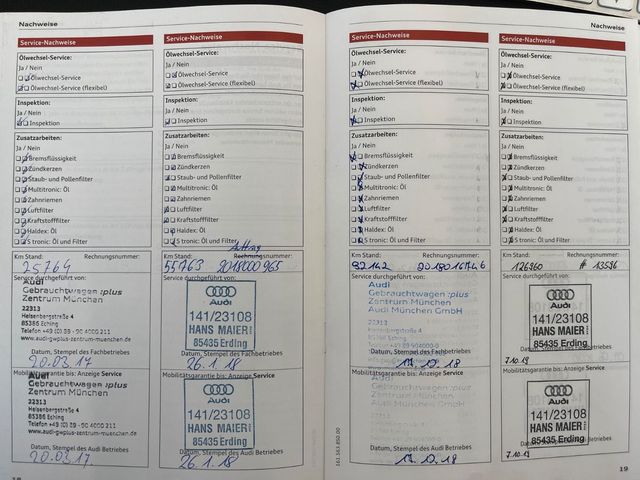 Nachweise
Service-Nachweise
Ölwechsel-Service:
Ja / Nein
Ölwechsel-Service
Ölwechsel-Service (flexibel)
Inspektion:
Ja / Nein
Inspektion
Zusatzarbeiten:
Ja / Nein
Bremsflüssigkeit
Zündkerzen
Staub- und Pollenfilter
Multitronic: Öl
Zahnriemen
Luftfilter
Kraftstofffilter
Haldex: Öl
S tronic: Öl und Filter
Km Stand: Rechnungsnummer:
25764
Service durchgeführt von:
Audi
Gebrauchtwagen :plus
Zentrum München
22313
Heisenbergstraße 4
85386 Eching
Telefon +49 (0) 89 - 90 4000 211
www.audi-gwplus-zentrum-muenchen.de
Datum, Stempel des Fachbetriebes
20.03.17
Mobilitätsgarantie bis: Anzeige Service
Audi
Gebrauchtwagen :plus
Zentrum München
22313
Heisenbergstraße 4
85386 Eching
Telefon +49 (0) 89 - 90 4000 211
www.audi-gwplus-zentrum-muenchen.de
Datum, Stempel des Audi Betriebes
20.03.17
18
Service-Nachweise
Ölwechsel-Service:
Ja / Nein
Ölwechsel-Service
Ölwechsel-Service (flexibel)
Inspektion:
Ja / Nein
Inspektion
Zusatzarbeiten:
Ja / Nein
Bremsflüssigkeit
Zündkerzen
Staub- und Pollenfilter
Multitronic: Öl
Zahnriemen
Luftfilter
Kraftstofffilter
Haldex: Öl
S tronic: Öl und Filter
Auftrag
Km Stand: Rechnungsnummer:
55763 2018000965
Service durchgeführt von:
Audi
141/23108
HANS MAIER
85435 Erding
Datum, Stempel des Fachbetriebes
26.1.18
Mobilitätsgarantie bis: Anzeige Service
Audi
141/23108
HANS MAIER
85435 Erding
Datum, Stempel des Audi Betriebes
26.1.18
Nachweise
Service-Nachweise
Ölwechsel-Service:
Ja / Nein
Ölwechsel-Service
Ölwechsel-Service (flexibel)
Inspektion:
Ja / Nein
Inspektion
Zusatzarbeiten:
Ja / Nein
Bremsflüssigkeit
Zündkerzen
Staub- und Pollenfilter
Multitronic: Öl
Zahnriemen
Luftfilter
Kraftstofffilter
Haldex: Öl
S tronic: Öl und Filter
Km Stand: Rechnungsnummer:
92142
Service durchgeführt von:
Audi
Gebrauchtwagen :plus
Zentrum München
Audi München GmbH
22313
Datum, Stempel des Fachbetriebes
Mobilitätsgarantie bis: Anzeige Service
Audi
Gebrauchtwagen :plus
Zentrum München
Audi München GmbH
Datum, Stempel des Audi Betriebes
Service-Nachweise
Ölwechsel-Service:
Ja / Nein
Ölwechsel-Service
Ölwechsel-Service (flexibel)
Inspektion:
Ja / Nein
Inspektion
Zusatzarbeiten:
Ja / Nein
Bremsflüssigkeit
Zündkerzen
Staub- und Pollenfilter
Multitronic: Öl
Zahnriemen
Luftfilter
Kraftstofffilter
Haldex: Öl
S tronic: Öl und Filter
Km Stand: Rechnungsnummer:
126360 # 13586
Service durchgeführt von:
Audi
141/23108
HANS MAIER
85435 Erding
Datum, Stempel des Fachbetriebes
7.10.19
Mobilitätsgarantie bis: Anzeige Service
Audi
141/23108
HANS MAIER
85435 Erding
Datum, Stempel des Audi Betriebes
7.10.19
19